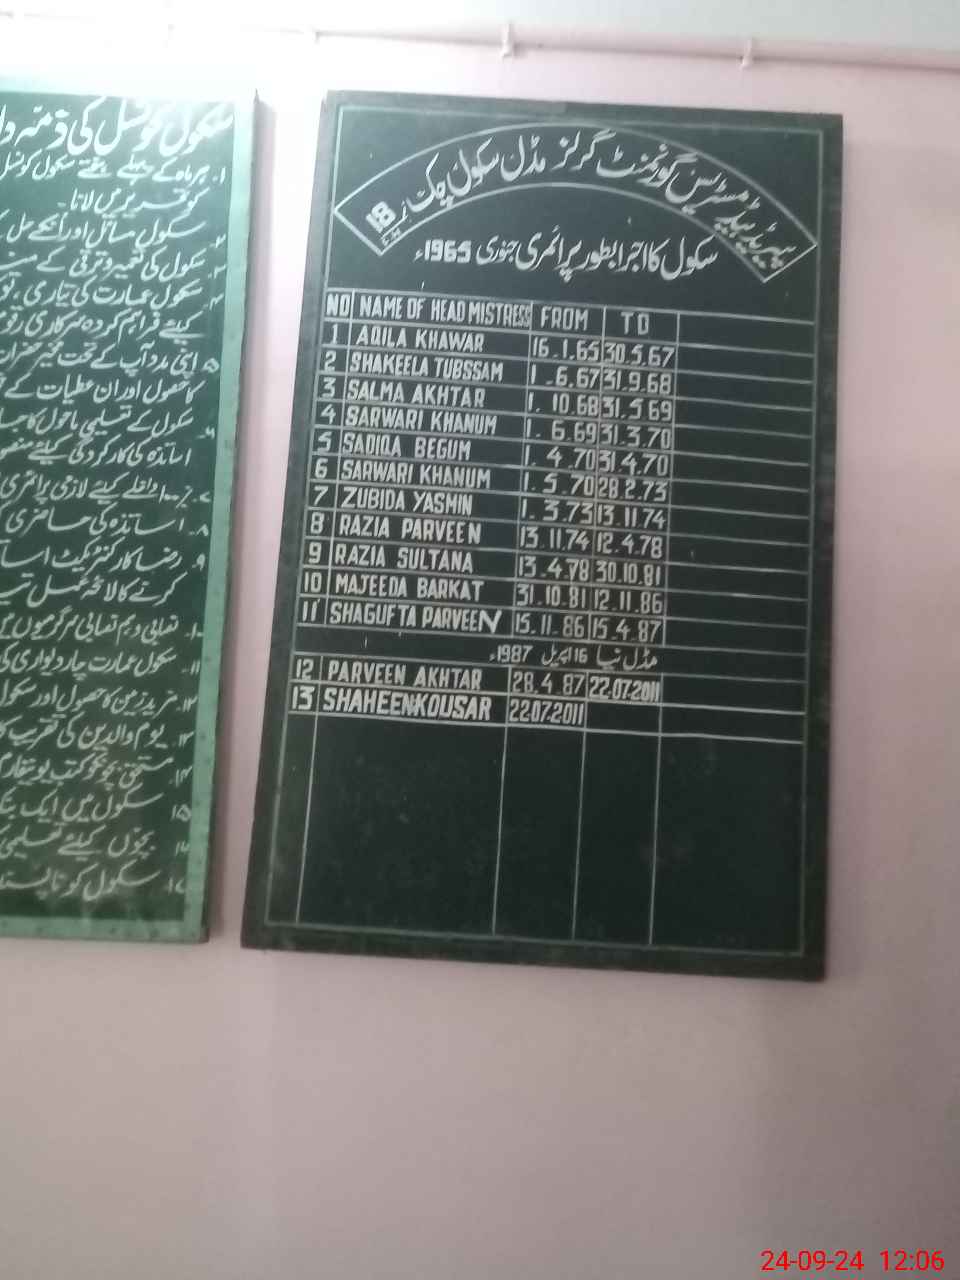 سکول کونسل کی ذمہ دا
۱۔ ہر ماہ کے پہلے ہفتے سکول کونسل
کو تحریر میں لانا۔
۲۔ سکول مسائل اور انکے حل
۳۔ سکول کی تعمیر و ترقی کے
۴۔ سکول عمارت کی تیاری،
کیلئے فراہم کردہ سرکاری رقوم
۵۔ اپنی مدد آپ کے تحت مخیر حضرات
کا حصول اور ان عطیات کے
۶۔ سکول کے تعلیمی ماحول کا
اساتذہ کی کارکردگی کیلئے
داخلے کیلئے لازمی پرائمری
۸۔ اساتذہ کی حاضری
۹۔ رضا کار کنٹریکٹ
کرنے کا لائحہ عمل
۱۰۔ نصابی و ہم نصابی سرگرمیوں
۱۱۔ سکول عمارت چار دیواری کی
۱۲۔ مزید زمین کا حصول اور سکول
۱۳۔ یوم والدین کی تقریب کا
۱۴۔ مستحق بچوں کو کتب یونیفارم
۱۵۔ سکول میں ایک
۱۶۔ بچوں کیلئے تعلیمی
۱۷۔ سکول کو
ہیڈ مسٹریس گورنمنٹ گرلز مڈل سکول چک 18
سکول کا اجرا بطور پرائمری جنوری 1965ء
NO NAME OF HEAD MISTRESS FROM TO
1 AQILA KHAWAR 16.1.65 30.5.67
2 SHAKEELA TUBSSAM 1.6.67 31.9.68
3 SALMA AKHTAR 1.10.68 31.5.69
4 SARWARI KHANUM 1.6.69 31.3.70
5 SADIQA BEGUM 1.4.70 31.4.70
6 SARWARI KHANUM 1.5.70 28.2.73
7 ZUBIDA YASMIN 1.3.73 13.11.74
8 RAZIA PARVEEN 13.11.74 12.4.78
9 RAZIA SULTANA 13.4.78 30.10.81
10 MAJEEDA BARKAT 31.10.81 12.11.86
11 SHAGUFTA PARVEEN 15.11.86 15.4.87
مڈل نیا 16 اپریل 1987ء
12 PARVEEN AKHTAR 28.4.87 22-07-2011
13 SHAHEEN KOUSAR 22-07-2011
24-09-24 12:06